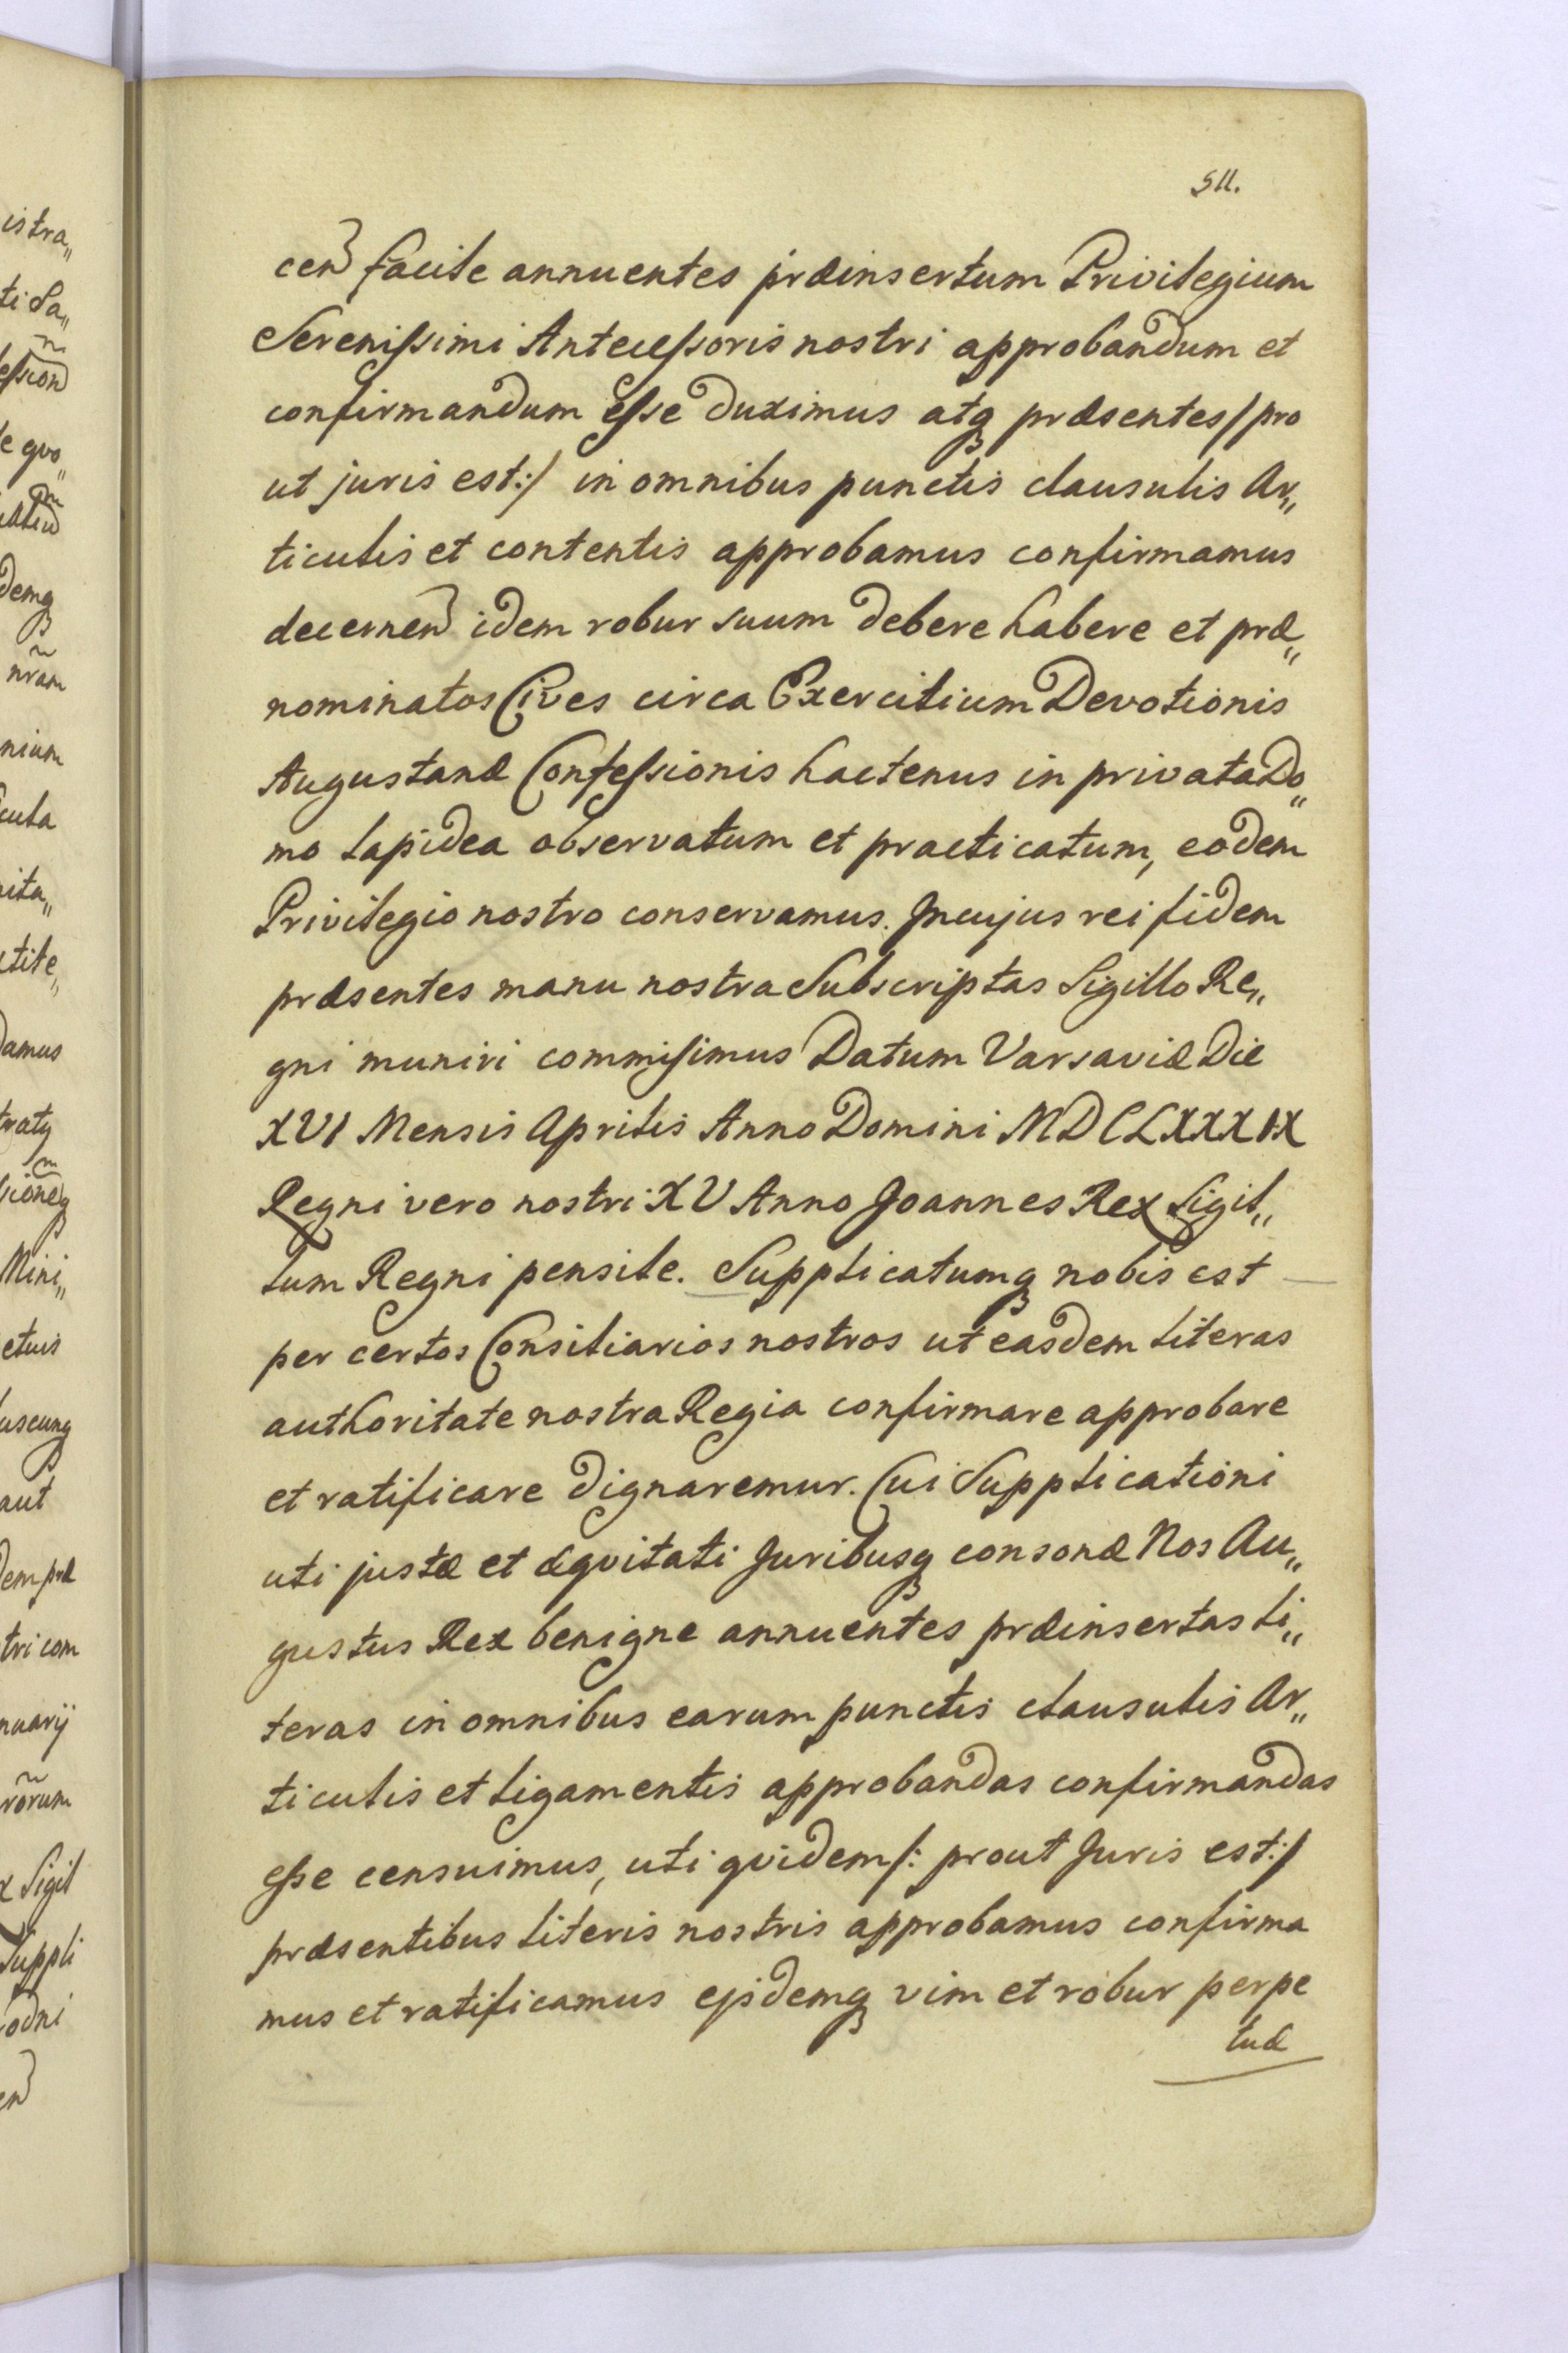 511.
cen facile annuentes præinsertum Privilegium
Serenissimi Antecessoris nostri approbandum et
confirmandum esse duximus atq præsentes /pro
ut juris est:/ in omnibus punctis clausulis Ar„
ticulis et contentis approbamus confirmamus
decernen idem robur suum debere habere et præ„
nominatos Cives circa Exercitium Devotionis
Augustanæ Confessionis hactenus in privata Do„
mo lapidea observatum et practicatum, eodem
Privilegio nostro conservamus. In cujus rei fidem
præsentes manu nostra Subscriptas Sigillo Re„
gni muniri commisimus Datum Varsaviæ Die
XVI Mensis Aprilis Anno Domini MDCLXXXIX
Regni vero nostri XV Anno Joannes Rex Sigil„
lum Regni pensile. Supplicatumq nobis est —
per certos Consiliarios nostros ut easdem literas
authoritate nostra Regia confirmare approbare
et ratificare dignaremur. Cui Supplicationi
uti justæ et æqvitati Juribusq consonæ Nos Au„
gustus Rex benigne annuentes præinsertas li„
teras in omnibus earum punctis clausulis Ar„
ticulis et ligamentis approbandas confirmandas
esse censuimus, uti qvidem /: prout Juris est:/
præsentibus literis nostris approbamus confirma
mus et ratificamus ejsdemq vim et robur perpe
tuæ
istra„
ti Sa„
ession
e qvo„
demq
nr̃am
nium
cula
ita„
tile„
damus
Mini„
etuis
uscunq
aut
dem præ
tri com
nuarij
rõrum
x Sigil
Suppli
odni
en